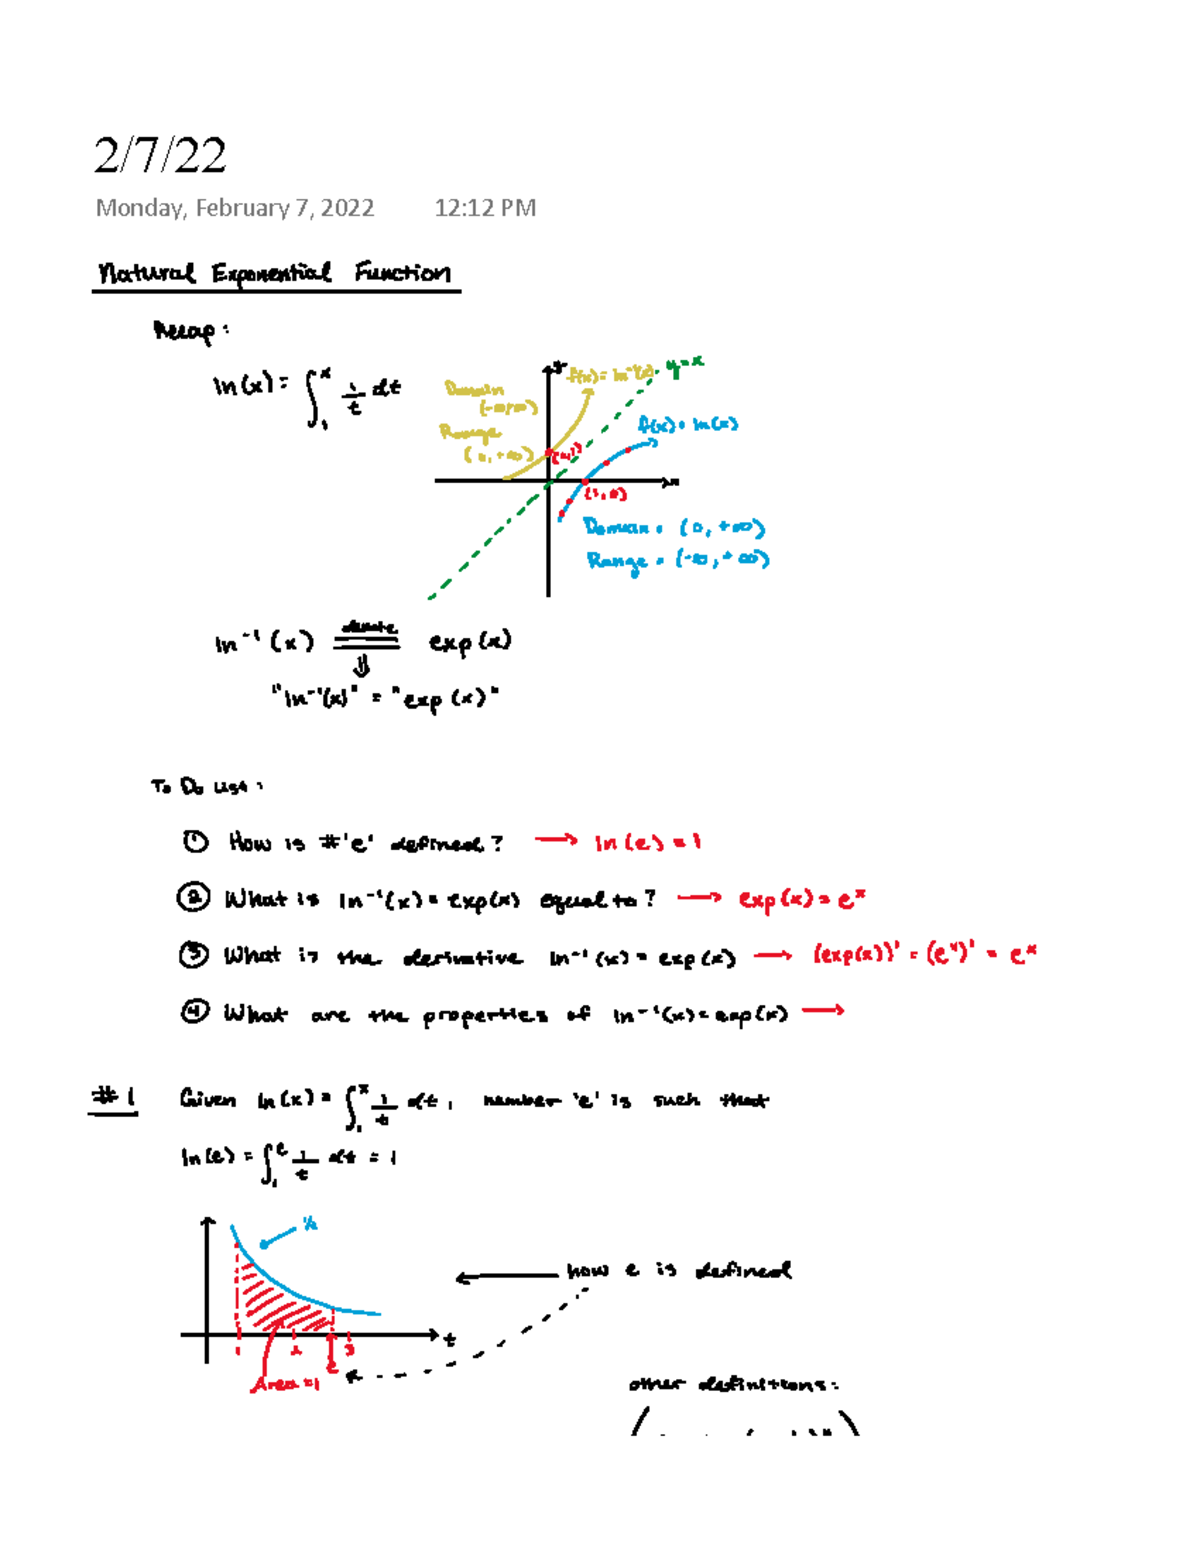 2/7/22
Monday, February 7, 2022 12:12 PM
Natural Exponential Function
Recap:
ln(x) = ∫₁ˣ 1/t dt
y
f(x) = ln⁻¹(x)
y=x
Domain
(-∞,∞)
Range
(0, +∞)
f(x) = ln(x)
(0,1)
x
(1,0)
Domain = (0, +∞)
Range = (-∞, +∞)
ln⁻¹(x) denote exp(x)
"ln⁻¹(x)" = "exp(x)"
To Do List:
① How is #'e' defined? → ln(e) = 1
② What is ln⁻¹(x) = exp(x) equal to? → exp(x) = eˣ
③ What is the derivative ln⁻¹(x) = exp(x) → (exp(x))' = (eˣ)' = eˣ
④ What are the properties of ln⁻¹(x) = exp(x) →
#1 Given ln(x) = ∫₁ˣ 1/t dt, number 'e' is such that
ln(e) = ∫₁ᵉ 1/t dt = 1
how e is defined
t
1 2 e 3
Area = 1
other definitions: